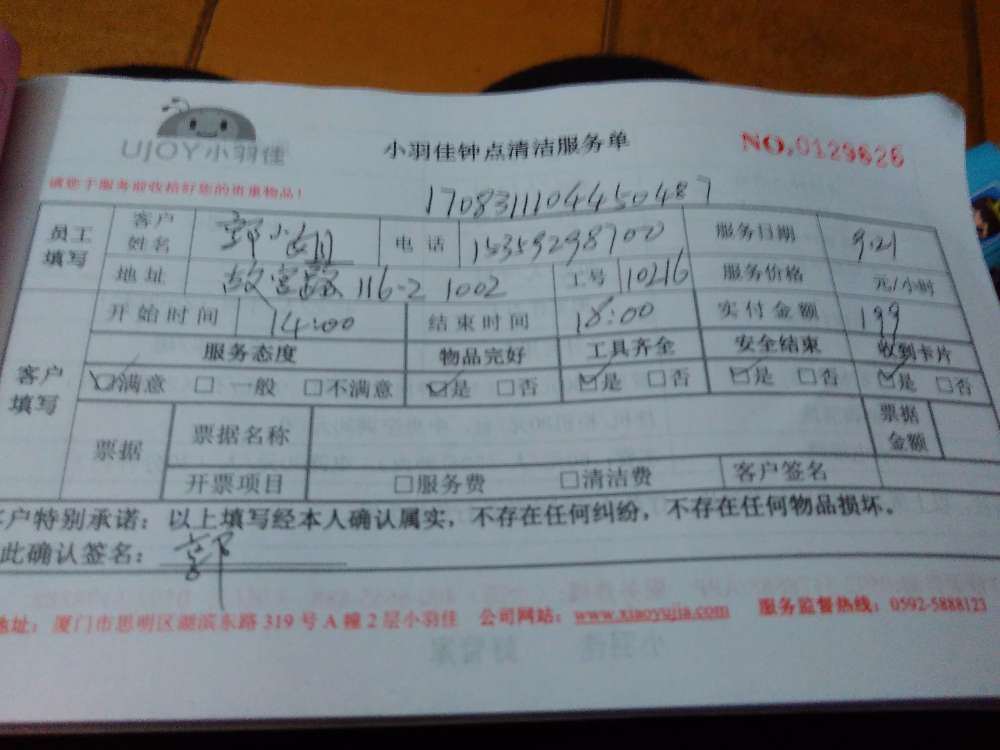 UJOY小羽佳 小羽佳钟点清洁服务单 NO.0129626
请您于服务前收拾好您的贵重物品！
1708311104450487
员工填写 客户姓名 郭小姐 电话 15359298700 服务日期 9.21
地址 故宫路 116-2 1002 工号 10216 服务价格 元/小时
客户填写 开始时间 14:00 结束时间 18:00 实付金额 199
服务态度 物品完好 工具齐全 安全结束 收到卡片
☑满意 □一般 □不满意 ☑是 □否 ☑是 □否 ☑是 □否 ☑是 □否
票据 票据名称 票据金额
开票项目 □服务费 □清洁费 客户签名
客户特别承诺：以上填写经本人确认属实，不存在任何纠纷，不存在任何物品损坏。
此确认签名：郭
地址：厦门市思明区湖滨东路319号A幢2层小羽佳 公司网站：www.xiaoyujia.com 服务监督热线：0592-5888123